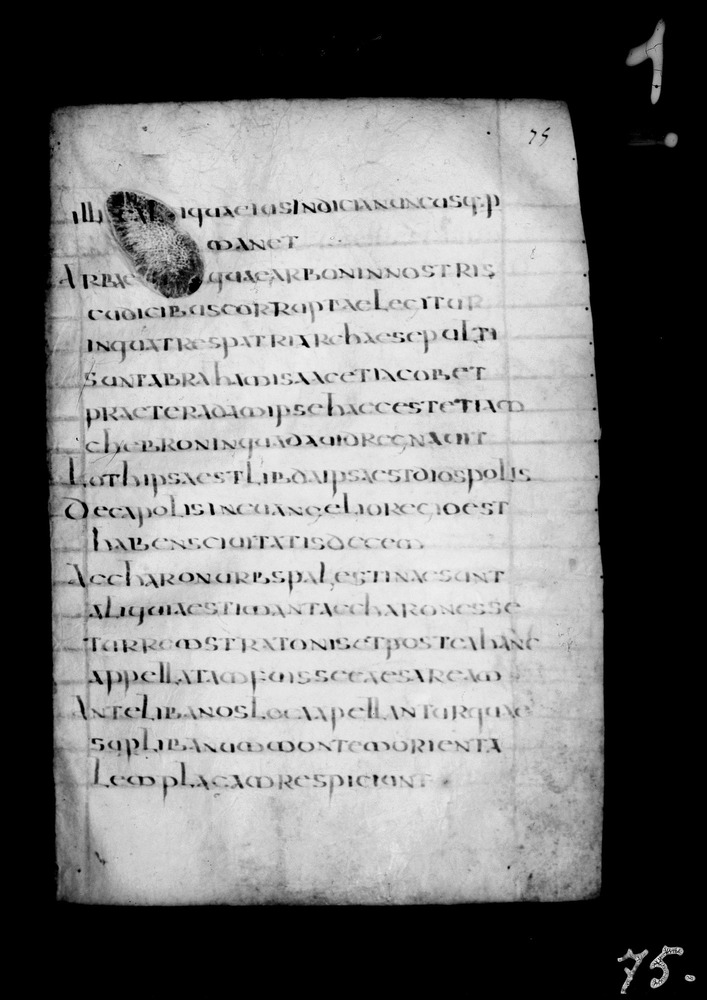 1
75
illi quaeiusindicianuncusq:p
manet
Arbae quaearboninnostris
codicibuscorruptaelegitur
inquatrespatriarchaesepulti
suntabrahamisaacetiacobet
praeteradamipsehaecestetiam
chebroninquadauidregnauit
Lothipsaestlibdaipsaestdiospolis
Decapolisineuangelioregioest
habensciuitatisdecem
Accharonurbspalestinaesunt
aliquiaestimantaccharonesse
turremstratonisetposteahanc
appellatamfuissecaesaream
Antelibanoslocaapellanturquae
suplibanummontemorienta
lemplagamrespiciunt
75.